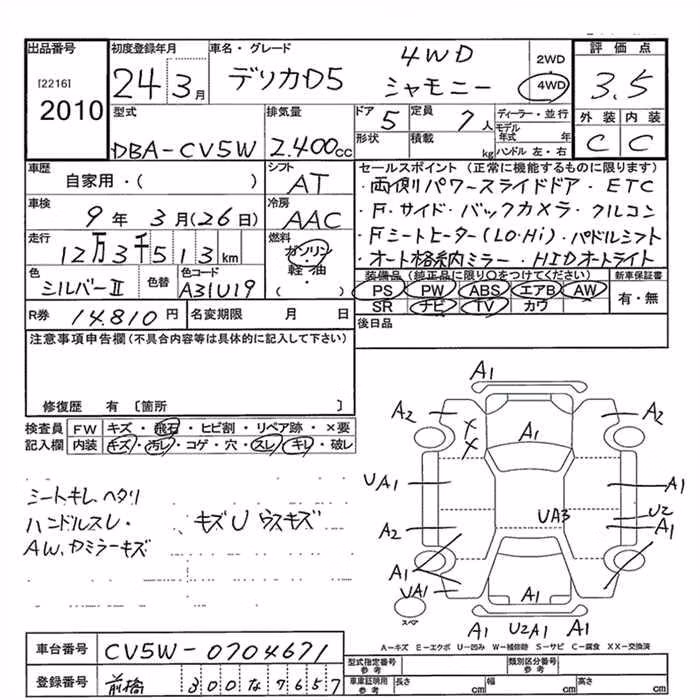 出品番号 初度登録年月 車名・グレード 4WD 2WD 評価点
[2216] 24 3月 デリカD5 シャモニー 4WD 3.5
2010 型式 排気量 ドア 5 定員 7人 ディーラー・並行 外装 内装
DBA-CV5W 2.400cc 形状 積載 kg モデル年式 年 ハンドル 左・右 C C
車歴 シフト セールスポイント (正常に機能するものに限ります)
自家用・( ) AT ・両側パワースライドドア・ETC
車検 9年 3月(26日) 冷房 AAC ・F・サイド・バックカメラ・クルコン
走行 12万3千513km 燃料 ガソリン・軽油 ( ) ・Fシートヒーター(LO・Hi)・パドルシフト
・オート格納ミラー・HIDオートライト
色 シルバーII 色替 色コード A31U19 装備品(純正品に限り○をつけてください) 新車保証書
PS PW ABS エアB AW 有・無
R券 14.810円 名変期限 月 日 SR ナビ TV カワ
注意事項申告欄(不具合内容等は具体的に記入して下さい) 後日品
修復歴 有 〔箇所 〕
検査員 FW キズ・飛石・ヒビ割・リペア跡・×要
記入欄 内装 キズ・汚レ・コゲ・穴・スレ・キレ・破レ
シートキレ、ヘタリ
ハンドルスレ・ キズU ウスキズ
AW、カミラーキズ
A1
A2 A1 A2
X
X
UA1 A1
UA3 U2
A2 A1
A1 A1
UA1 A1
スペア A1 U2A1 A1
A-キズ E-エクボ U-凹み W-補修跡 S-サビ C-腐食 XX-交換済
車台番号 CV5W-0704671
型式指定番号 参考 類別区分番号 参考
登録番号 前橋 300な7657
車庫証明用 参考 長さ cm 幅 cm 高さ cm